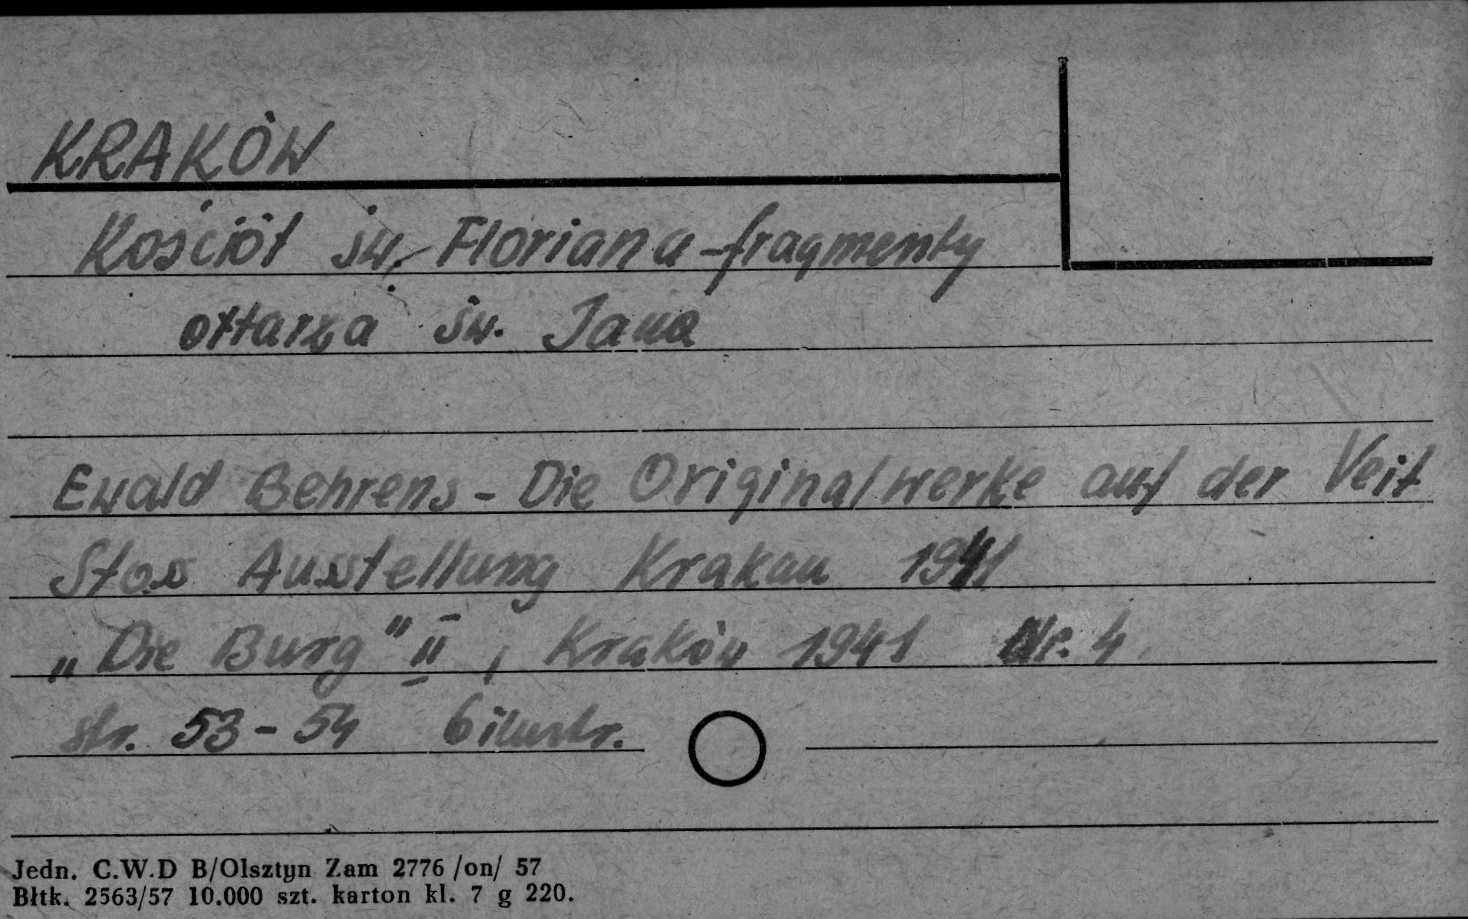 KRAKÓW
Kościół św. Floriana - fragmenty
ołtarza św. Jana
Ewald Behrens - Die Originalwerke auf der Veit
Stoss Ausstellung Krakau 1941
„Die Burg" II, Kraków 1941 Nr. 4
str. 53-54 6 ilustr.
Jedn. C.W.D B/Olsztyn Zam 2776 /on/ 57
Błtk. 2563/57 10.000 szt. karton kl. 7 g 220.